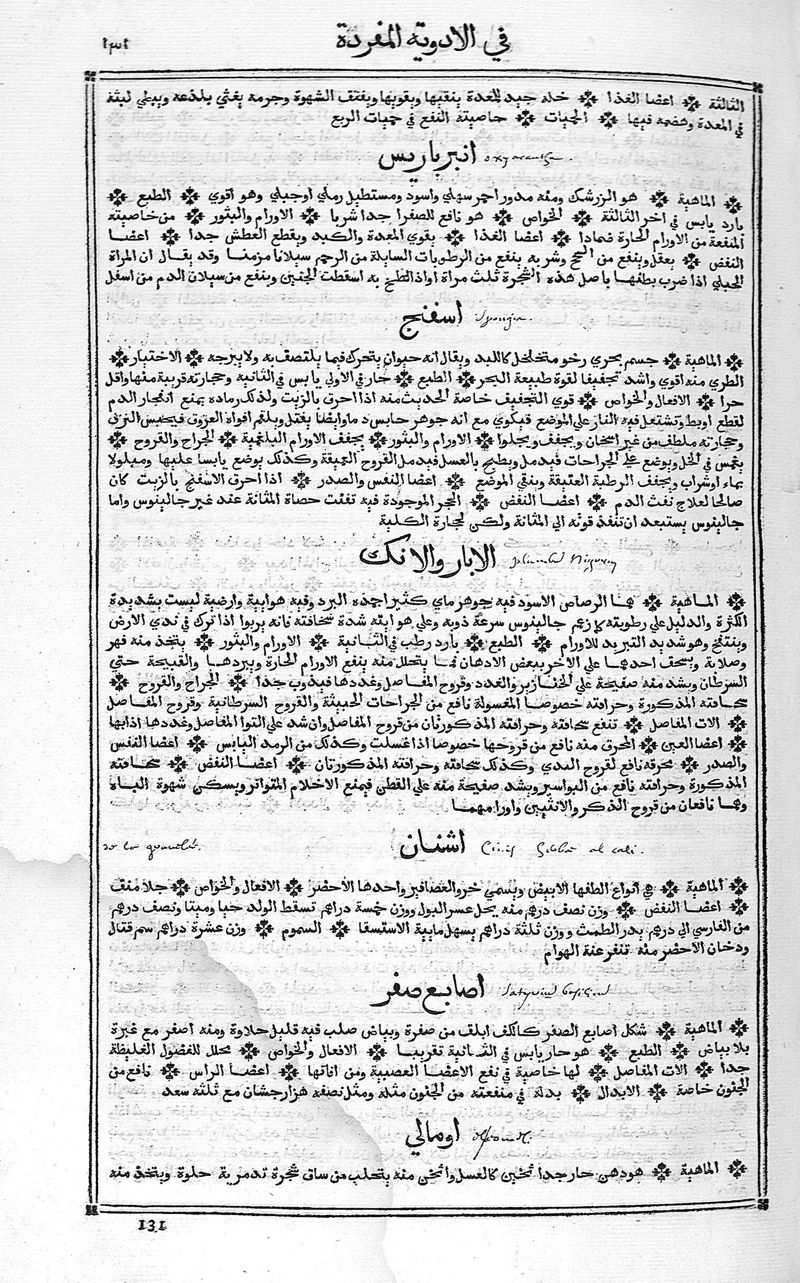 ١٣١
في الادوية المفردة
الثالثة ❊ اعضا الغذا ❊ خله جيد للمعدة ينقيها ويقويها ويفتق الشهوة وجرمه يغثي بلذعه وبطي لبثه
في المعدة وهضمه فيها ❊ الحميات ❊ خاصيته النفع في حميات الربع
انبرباريس oxyacantha.
❊ الماهية ❊ هو الزرشك ومنه مدور احمر سهلي واسود ومستطيل رملي اوجبلي وهو اقوي ❊ الطبع ❊
بارد يابس في اخر الثالثة ❊ الخواص ❊ هو نافع للصفرا جدا شربا ❊ الاورام والبثور ❊ من خاصيته
المنفعة من الاورام الحارة ضمادا ❊ اعضا الغذا ❊ يقوي المعدة والكبد ويقطع العطش جدا ❊ اعضا
النفض ❊ يعقل وينفع من السحج وشربه ينفع من الرطوبات السايلة من الرحم سيلانا مزمنا وقد يقال ان المراة
الحبلي اذا ضرب بطنها باصل هذه الشجرة ثلث مراة اواذا لطخ به اسقطت الجنين وينفع من سيلان الدم من اسفل
اسفنج Spongia
❊ الماهية ❊ جسم بحري رخو متخلخل كاللبد ويقال انه حيوان يتحرك فيما يلتصق به ولا يبرحه ❊ الاختيار ❊
الطري منه اقوي واشد تجفيفا لقوة طبيعة البحر ❊ الطبع ❊ حار في الاولي يابس في الثانية وحجارته قريبة منها واقل
حرا ❊ الافعال والخواص ❊ قوي التجفيف خاصة الحديث منه اذا احرق بالزيت ولذلك رماده يمنع انفجار الدم
لقطع اوبط وتشتعل فيه النار علي الموضع فيكوي مع انه جوهر حابس دما وايضا يفتل ويلقم افواه العروق فيحبس النزف
وحجارته ملطف من غير اسخان ويجفف ويجلوا ❊ الاورام والبثور ❊ يجفف الاورام البلغمية ❊ الجراح والقروح ❊
يغمس في الخل ويوضع علي الجراحات فيدمل ويطبخ بالعسل فيدمل القروح العميقة وكذلك يوضع يابسا عليها ومبلولا
بماء اوشراب ويجفف الرطبة العتيقة وينقي الموضع ❊ اعضا النفس والصدر ❊ اذا احرق الاسفنج بالزيت كان
صالحا لعلاج نفث الدم ❊ اعضا النفض ❊ الحجر الموجودة فيه تفتت حصاة المثانة عند غير جالينوس واما
جالينوس يستبعد ان تنفذ قوته الي المثانة ولكن لحجارة الكلية
الابار والانك plumbum Nigrum
❊ الماهية ❊ هما الرصاص الاسود فيه جوهر ماي كثير اجمده البرد وفيه هوايية وارضية ليست بشديدة
الكثرة والدليل علي رطوبته كما زعم جالينوس سرعة ذوبه وعلي هوايته شدة سخافته فانه يربوا اذا ترك في ندي الارض
وينتفخ وهو شديد التبريد للاورام ❊ الطبع ❊ بارد رطب في الثانية ❊ الاورام والبثور ❊ يتخذ منه فهر
وصلاية ويسحف احدهما علي الاخر ببعض الادهان فما يتحلل منه ينفع الاورام الحارة ويبردها والقبيحة حتي
السرطان ويشد منه صفيحة علي الخنازير والغدد وقروح المفاصل وغددها فيذوب جدا ❊ الجراح والقروح ❊
سحافته المذكورة وحرافته خصوصا المغسولة نافع من الجراحات الخبيثة والقروح السرطانية وقروح المفاصل
❊ الات المفاصل ❊ تنفع سحافته وحرافته المذكورتان من قروح المفاصل وان شد علي التوا المفاصل وغددها اذابها
❊ اعضا العين ❊ المحرق منه نافع من قروحها خصوصا اذا غسلت وكذلك من الرمد اليابس ❊ اعضا النفس
والصدر ❊ محرقه نافع لقروح الثدي وكذلك سحافته وحرافته المذكورتان ❊ اعضا النفض ❊ سحافته
المذكورة وحرافته نافع من البواسير ويشد صفيحة منه علي القطن فيمنع الاحلام المتواتر ويسكن شهوة الباه
وهما نافعان من قروح الذكر والانثيين واورامهما
اشنان
❊ الماهية ❊ هي انواع الطفها الابيض ويسمي خرو العصافير واحدها الاخضر ❊ الافعال والخواص ❊ جلا منق
❊ اعضا النفض ❊ وزن نصف درهم منه يحل عسر البول ووزن خمسة دراهم تسقط الولد حيا وميتا ونصف درهم
من الفارسي الي درهم يدر الطمث ووزن ثلثة دراهم يسهل مايية الاستسقا ❊ السموم ❊ وزن عشرة دراهم سم قتال
ودخان الاخضر منه تنفر عنه الهوام
اصابع صفر
❊ الماهية ❊ شكل اصابع الصفر كالكف ابلق من صفرة وبياض صلب فيه قليل حلاوة ومنه اصفر مع غبرة
بلا بياض ❊ الطبع ❊ هو حار يابس في الثانية تقريبا ❊ الافعال والخواص ❊ محلل للفضول الغليظة
جدا ❊ الات المفاصل ❊ لها خاصية في نفع الاعضا العصبية ومن افاتها ❊ اعضا الراس ❊ نافع من
الجنون خاصة ❊ الابدال ❊ بدله في منفعته من الجنون مثله ومثل نصفه هزارجشان مع ثلثه سعد
اومالي
❊ الماهية ❊ هو دهن حار جدا ثخين كالعسل واثخن منه يتحلب من ساق شجرة تدمرية حلوة ويتخذ منه
131